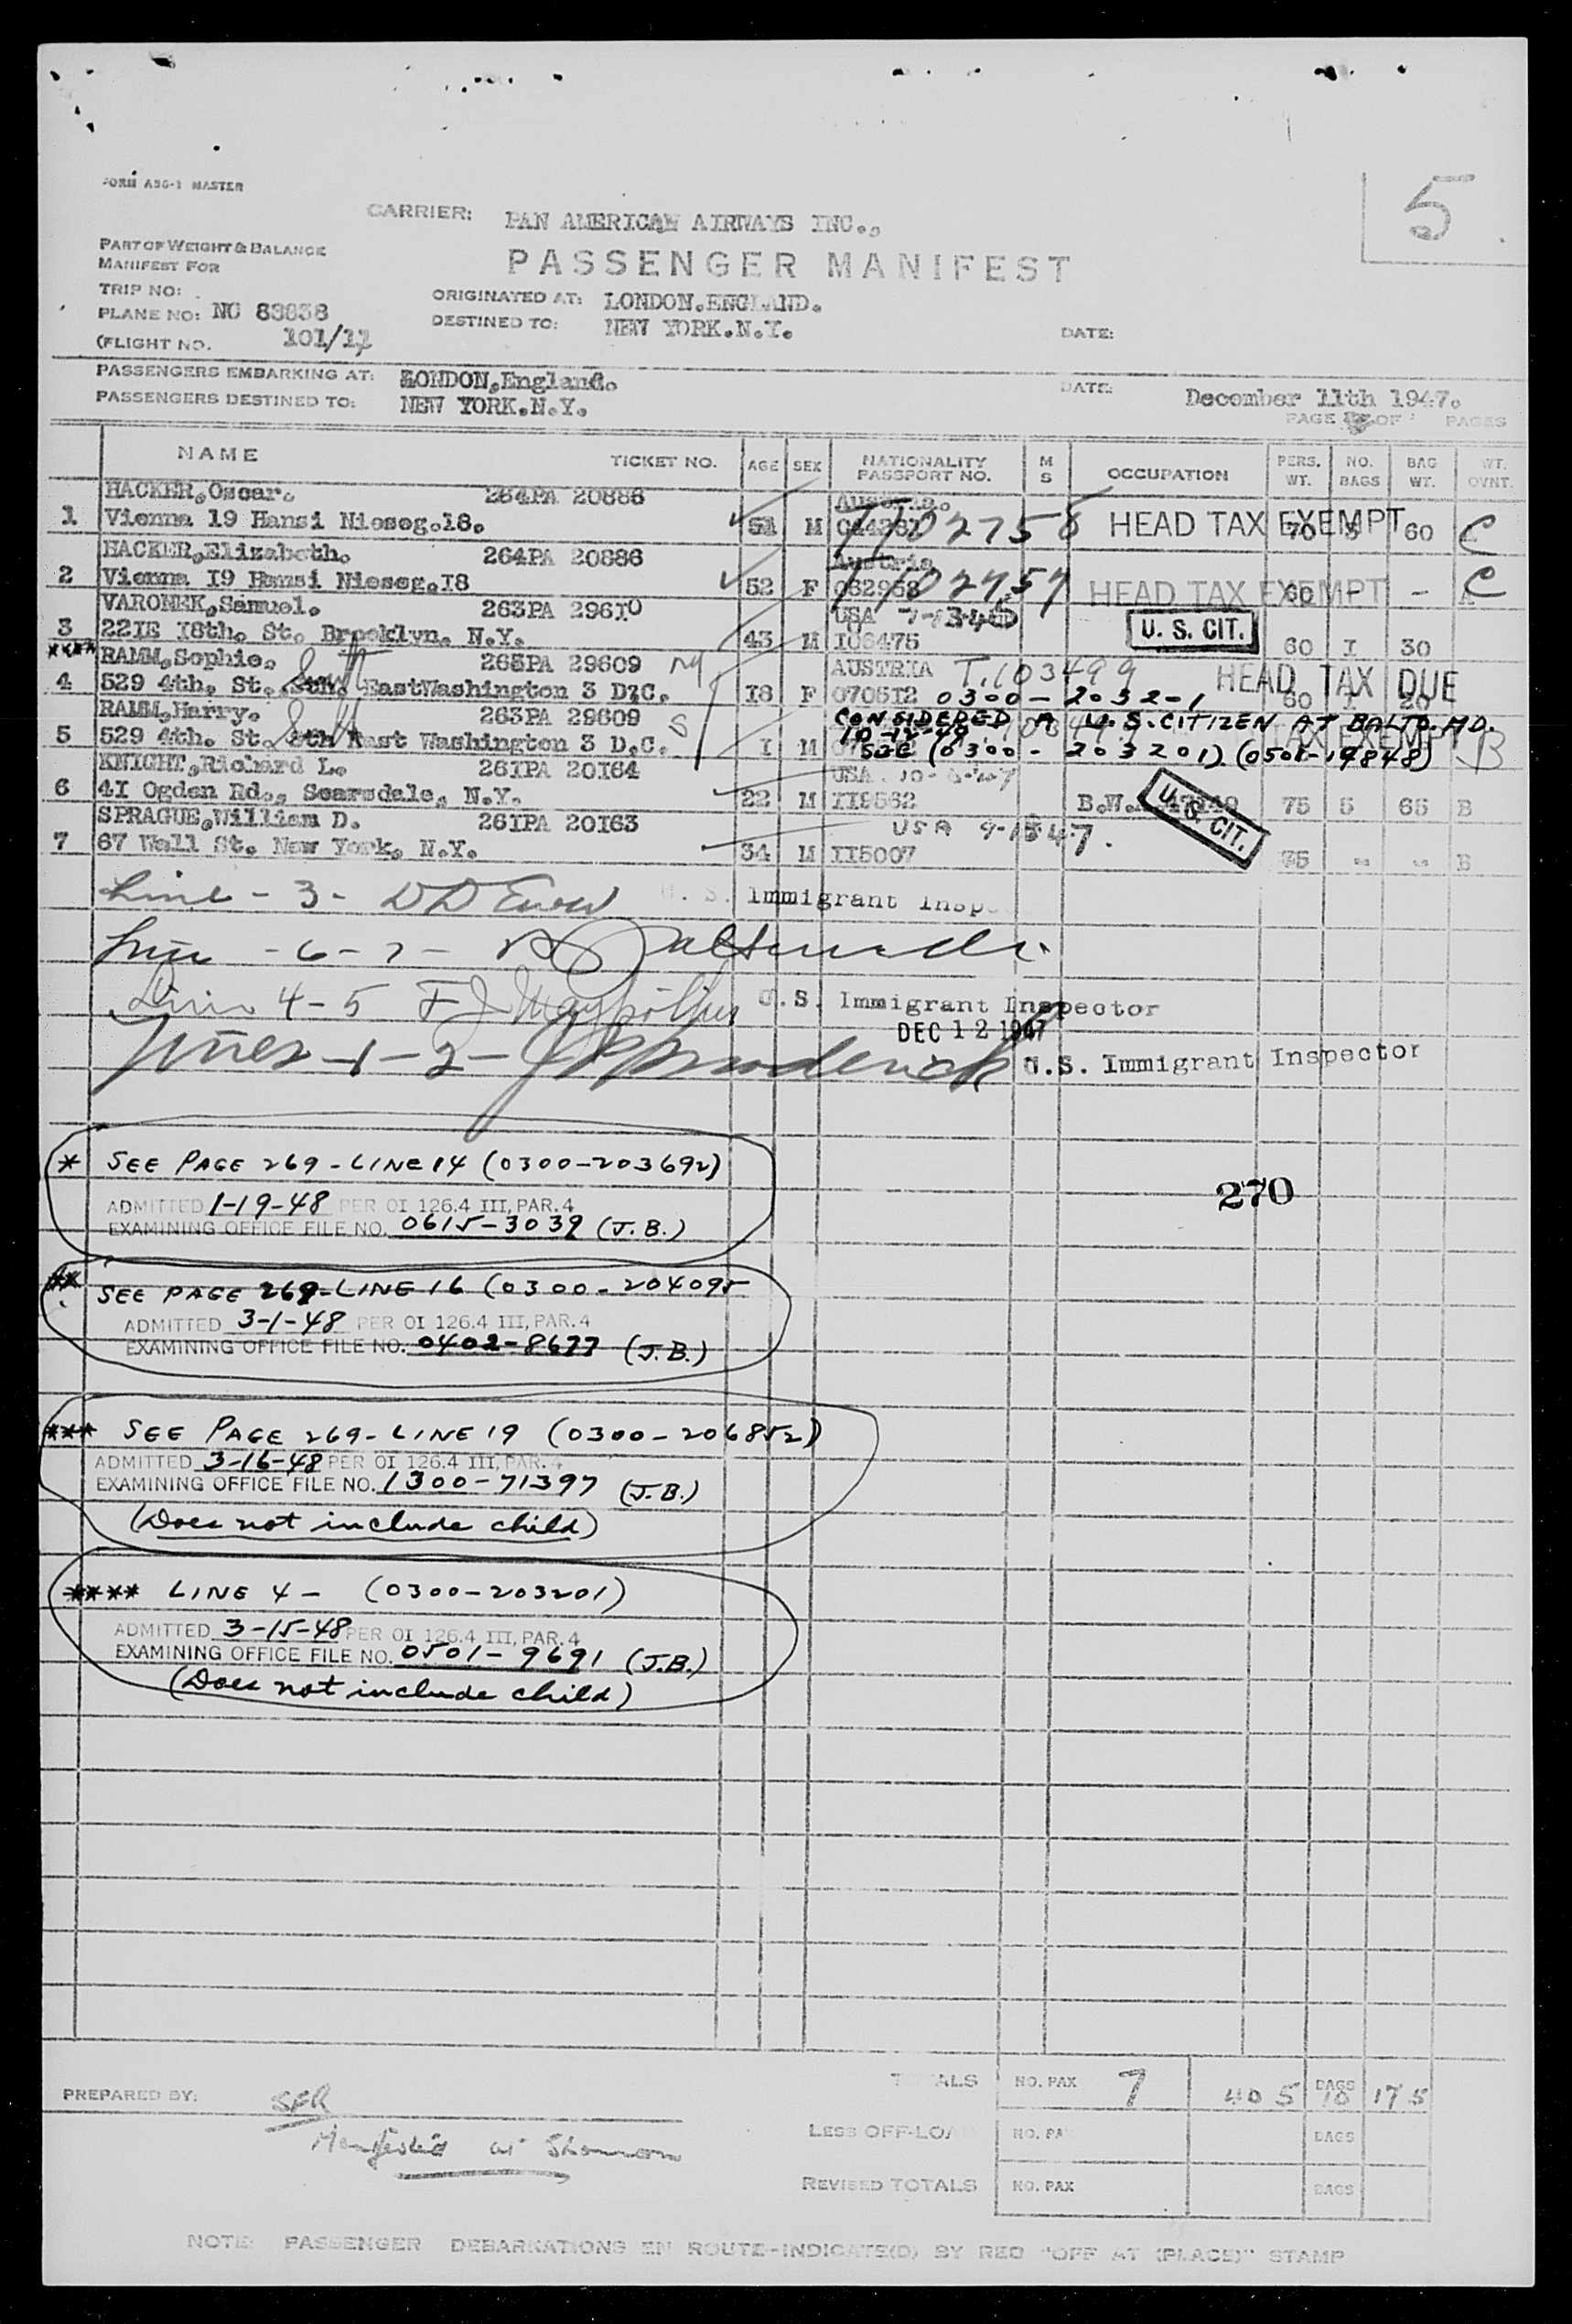 FORM ABG-1 MASTER
5
CARRIER: PAN AMERICAN AIRWAYS INC.,
PART OF WEIGHT & BALANCE
MANIFEST FOR
PASSENGER MANIFEST
TRIP NO:
ORIGINATED AT: LONDON.ENGLAND.
PLANE NO: NC 83838
DESTINED TO: NEW YORK.N.Y.
DATE:
(FLIGHT NO. 101/11
PASSENGERS EMBARKING AT: LONDON,England.
DATE: December 11th 1947.
PASSENGERS DESTINED TO: NEW YORK.N.Y.
PAGE OF PAGES
NAME TICKET NO. AGE SEX NATIONALITY PASSPORT NO. M S OCCUPATION PERS. WT. NO. BAGS BAG WT. WT. OVNT.
HACKER,Oscar. 264PA 20886 Austria.
1 Vienna 19 Hansi Nieseg.18. 51 M HEAD TAX EXEMPT 70 5 60 C
HACKER,Elizabeth. 264PA 20886 Austria
2 Vienna I9 Hansi Nieseg.I8 52 F HEAD TAX EXEMPT 60 - - C
VARONEK,Samuel. 263PA 296I0 USA
3 22IE I8th. St. Brooklyn. N.Y. 43 M I06475 U. S. CIT. 60 I 30
****
RAMM,Sophie. 263PA 29609 AUSTRIA T.103499 HEAD TAX DUE
4 529 4th. St. EastWashington 3 D.C. I8 F 0706I2 0300-2032-1 60 I 20
RAMM,Harry. 263PA 29609 S CONSIDERED A U.S. CITIZEN AT BALTO. MD.
5 529 4th. St. East Washington 3 D.C. I M 10-12-49 SEE (0300-203201) (0501-19848) B
KNIGHT,Richard L. 26IPA 20I64 USA
6 4I Ogden Rd., Scarsdale, N.Y. 22 M II9562 U. S. CIT. 75 5 65 B
SPRAGUE,William D. 26IPA 20I63 USA
7 67 Wall St. New York, N.Y. 34 M II5007 75 - - B
Line - 3 - U. S. Immigrant Insp
Line - 6 - 7 -
Line 4 - 5 U.S. Immigrant Inspector
DEC 12 1947
Lines - 1 - 2 - U.S. Immigrant Inspector
* SEE PAGE 269 - LINE 14 (0300-203692)
270
ADMITTED 1-19-48 PER OI 126.4 III, PAR. 4
EXAMINING OFFICE FILE NO. 0615-3039 (J.B.)
** SEE PAGE 269-LINE 16 (0300-204095
ADMITTED 3-1-48 PER OI 126.4 III, PAR. 4
EXAMINING OFFICE FILE NO. 0402-8677 (J.B.)
*** SEE PAGE 269- LINE 19 (0300-206852)
ADMITTED 3-16-48 PER OI 126.4 III, PAR. 4
EXAMINING OFFICE FILE NO. 1300-71397 (J.B.)
(Does not include child)
**** LINE 4 - (0300-203201)
ADMITTED 3-15-48 PER OI 126.4 III, PAR. 4
EXAMINING OFFICE FILE NO. 0501-9691 (J.B.)
(Does not include child)
TOTALS NO. PAX 7 405 BAGS 10 175
PREPARED BY: SFR
Manifested at Shannon
LESS OFF-LOA NO. PA BAGS
REVISED TOTALS NO. PAX BAGS
NOTE: PASSENGER DEBARKATIONS EN ROUTE-INDICATE(D) BY RED "OFF AT (PLACE)" STAMP